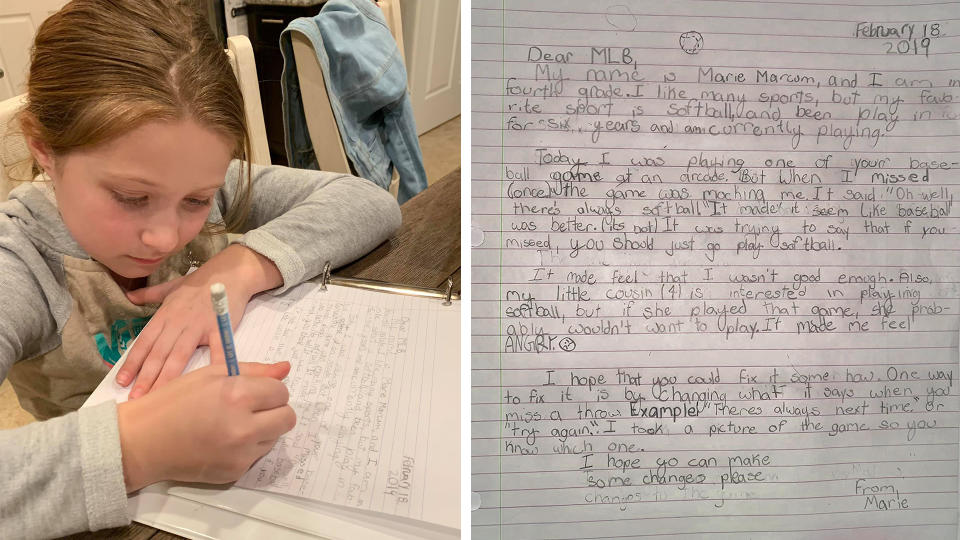 February 18
2019
Dear MLB,
My name is Marie Marcum, and I am in
fourth grade. I like many sports, but my favo-
rite sport is softball, and been play in
for six years and am currently playing.
Today I was playing one of your base-
ball game at an arcade. But when I missed
(once) the game was moching me. It said "Oh well,
there's always softball" It made it seem like baseball
was better. (its not) It was trying to say that if you
missed, you should just go play softball.
It made feel that I wasn't good enough. Also,
my little cousin (4) is interested in playing
softball, but if she played that game, she prob-
ably wouldn't want to play. It made me feel
ANGRY.
I hope that you could fix it some how. One way
to fix it is by changing what it says when you
miss a throw. Example! "Theres always next time," or
"try again." I took a picture of the game so you
know which one.
I hope yo can make
some changes please
changes to the game
From,
Marie